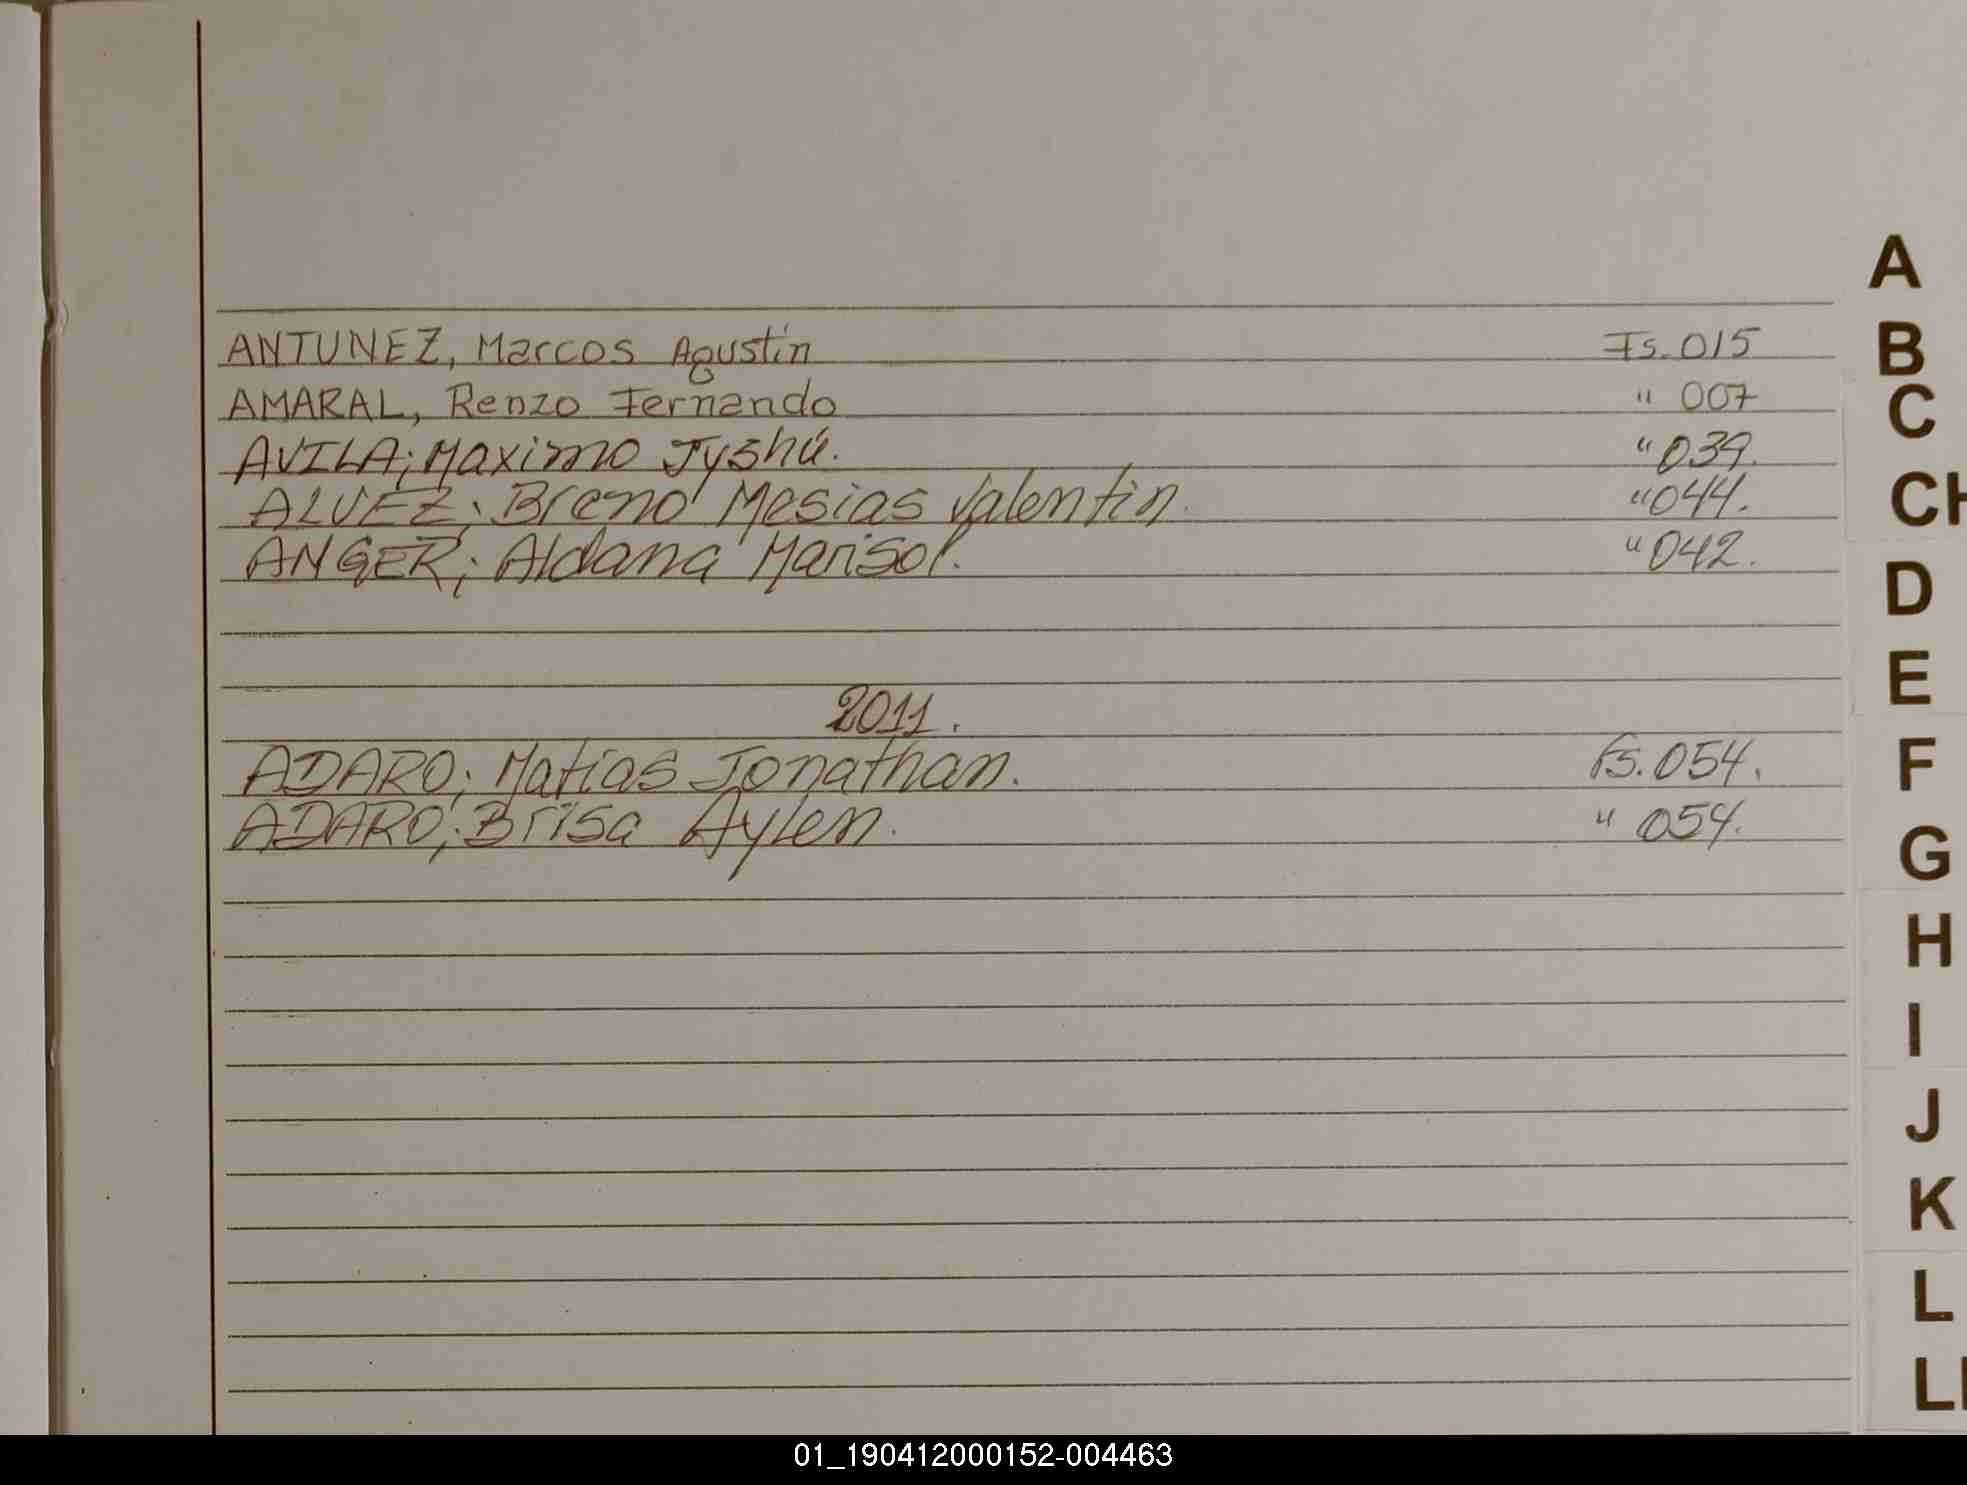 ANTUNEZ, Marcos Agustín Fs. 015
AMARAL, Renzo Fernando " 007
AVILA; Maximo Jyshú. " 039.
ALVEZ; Breno Mesias Valentin. " 044.
ANGER; Aldana Marisol. " 042.
2011.
ADARO; Matías Jonathan. Fs. 054.
ADARO; Brisa Aylen. " 054.
A
B
C
CH
D
E
F
G
H
I
J
K
L
Ll
01_190412000152-004463